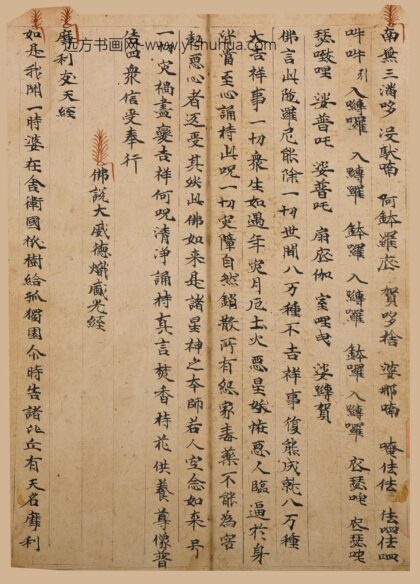 远方书画网-www.yfshuhua.com
南無三滿哆 沒馱喃 阿鉢羅底 賀哆捨 婆那喃 唵佉佉 佉呬佉呬
吽吽引 入嚩囉 入嚩囉 鉢囉 入嚩囉 鉢囉 入嚩囉 底瑟咤 底瑟咤
瑟致哩 娑普吒 娑普吒 扇底伽 室哩曳 娑嚩賀
佛言此陁羅尼能除一切世間八万種不吉祥事復能成就八万種
大吉祥事一切衆生如遇年灾月厄土火惡星妖恠惡人臨逼於身
當至心誦持此呪一切灾障自然銷散所有怨家毒藥不能為害
惡心者还受其殃此佛如来是諸星神之本師若人定念如来号
一切灾禍盡變吉祥何呪清净誦持真言焚香持花供養尊像普
告四衆信受奉行
佛說大威德熾盛光経
摩利支天経
如是我聞一時婆在舍衛國祇樹給孤獨園尒時告諸比丘有天名摩利